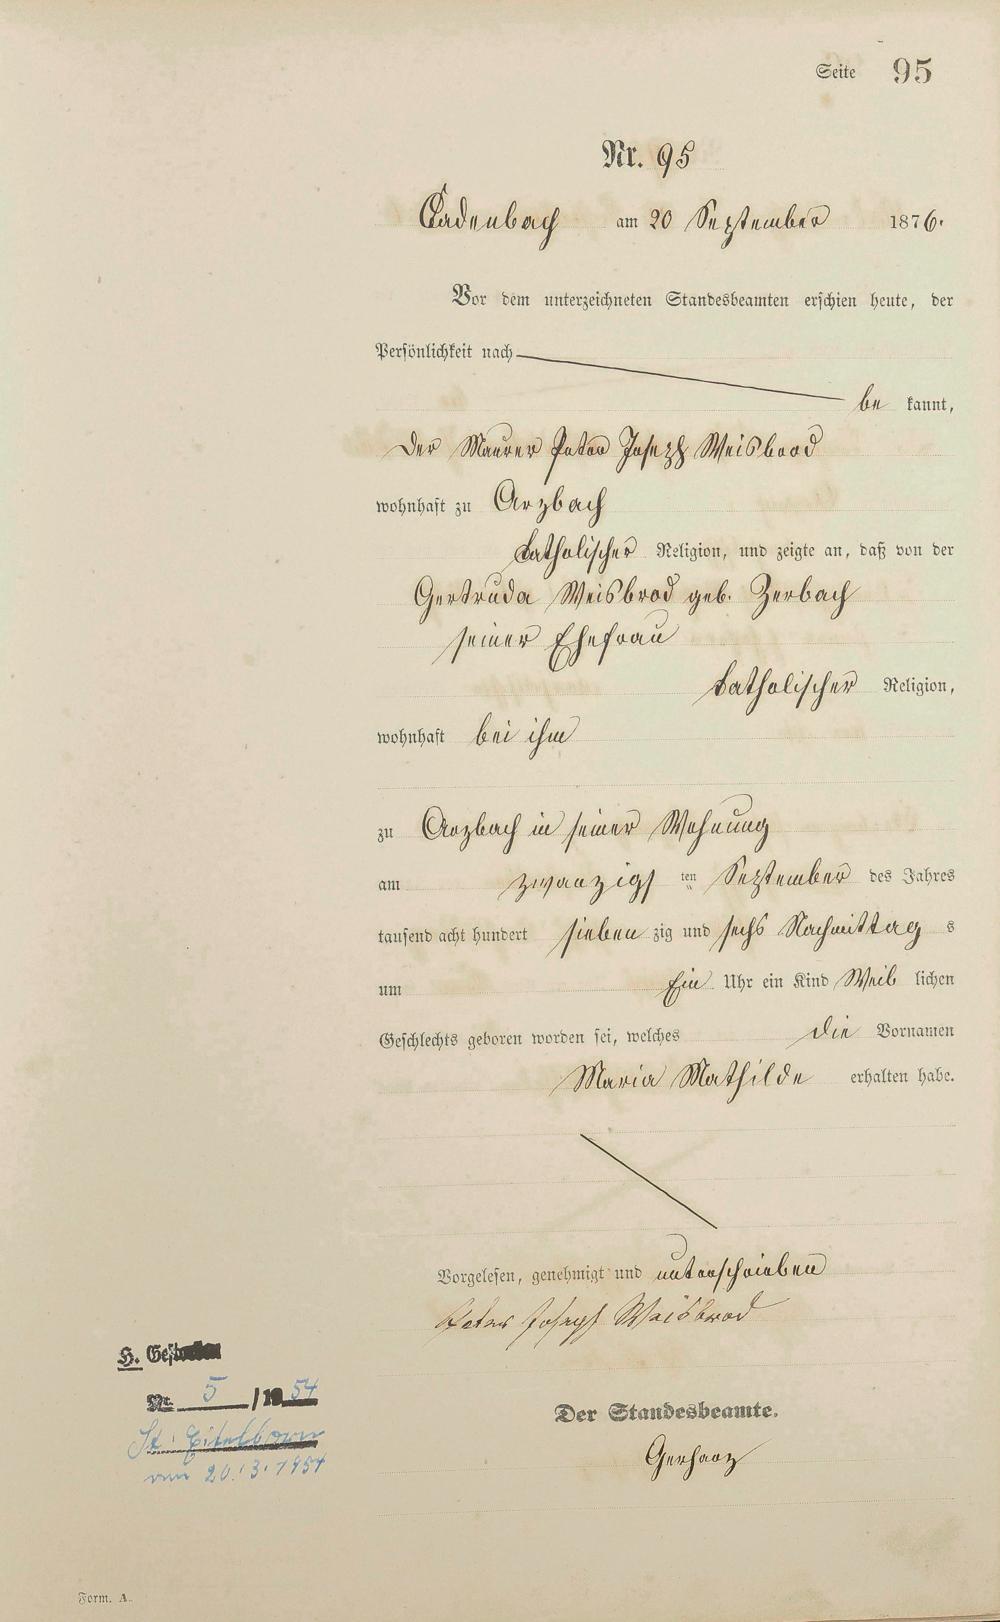 Seite 95
Nr. 95
Cadenbach am 20 September 1876.
Vor dem unterzeichneten Standesbeamten erschien heute, der
Persönlichkeit nach
be kannt,
der Maurer Peter Joseph Weisbrod
wohnhaft zu Arzbach
katholischer Religion, und zeigte an, daß von der
Gertruda Weisbrod geb. Zerbach
seiner Ehefrau
katholischer Religion,
wohnhaft bei ihm
zu Arzbach in seiner Wohnung
am zwanzigs ten September des Jahres
tausend acht hundert sieben zig und sechs Nachmittag s
um Ein Uhr ein Kind Weib lichen
Geschlechts geboren worden sei, welches die Vornamen
Maria Mathilde erhalten habe.
Vorgelesen, genehmigt und unterschrieben
Peter Joseph Weisbrod
H.
Nr. 5 /19 54
St. Eitelborn
am 20.3.1954
Der Standesbeamte.
Gerharz
Form. A.